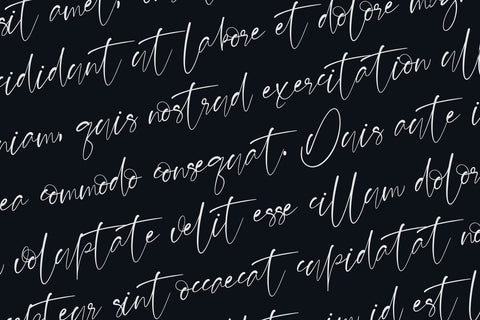 sit amet,
cididunt ut labore et dolore mag
niam, quis nostrud exercitation ull
ea commodo consequat. Duis aute i
voluptate velit esse cillum dolor
cepteur sint occaecat cupidatat no
id est l